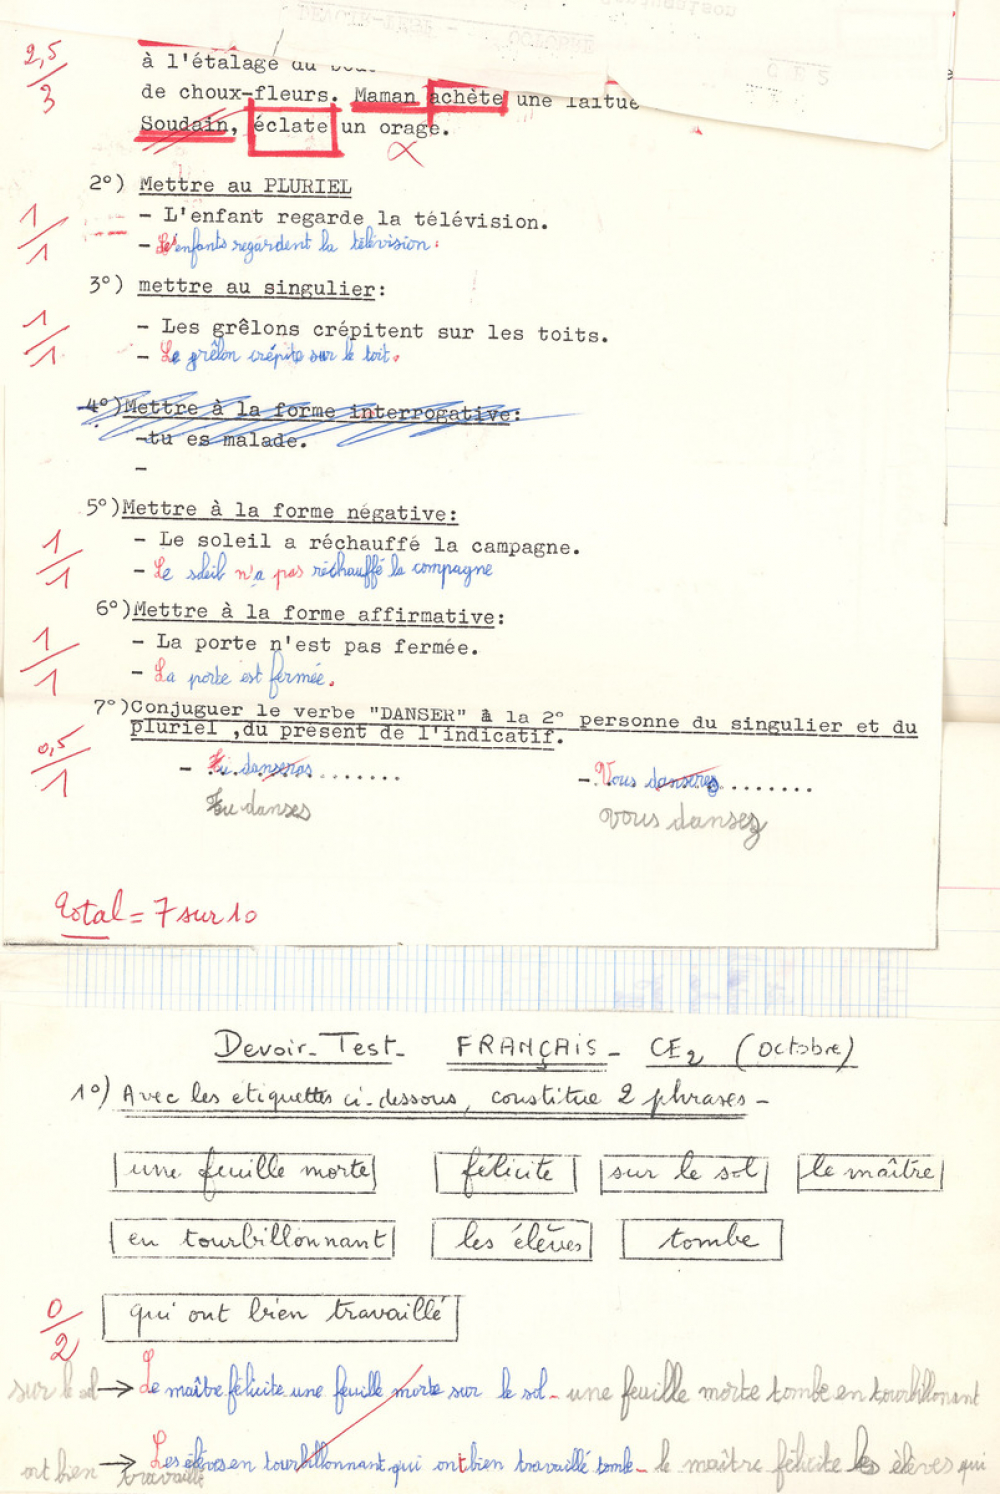 2,5/3
à l'étalage du
de choux-fleurs. Maman achète une laitue
Soudain, éclate un orage.
2°) Mettre au PLURIEL
- L'enfant regarde la télévision.
1/1
- Les enfants regardent la télévision.
3°) mettre au singulier:
- Les grêlons crépitent sur les toits.
1/1
- Le grêlon crépite sur le toit.
4°)Mettre à la forme interrogative:
-tu es malade.
-
5°)Mettre à la forme négative:
- Le soleil a réchauffé la campagne.
1/1
- Le soleil n'a pas réchauffé la compagne
6°)Mettre à la forme affirmative:
- La porte n'est pas fermée.
1/1
- La porte est fermée.
7°)Conjuguer le verbe "DANSER" à la 2° personne du singulier et du
pluriel ,du présent de l'indicatif.
0,5/1
- Tu danseras ....... - Vous danserez .......
Tu danses vous dansez
total = 7 sur 10
Devoir-Test- FRANÇAIS - CE2 (Octobre)
1°) Avec les etiquettes ci-dessous, constitue 2 phrases -
une feuille morte félicite sur le sol le maître
en tourbillonnant les élèves tombe
0/2
qui ont bien travaillé
sur le sol → Le maître félicite une feuille morte sur le sol - une feuille morte tombe en tourbillonant
ont bien travaillé → Les élèves en tourbillonnant qui ont bien travaillé tombe - le maître félicite les élèves qui